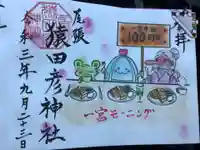 奉拝
尾張
猿田彦神社
令和三年九月二十三日
100円
一宮モーニング